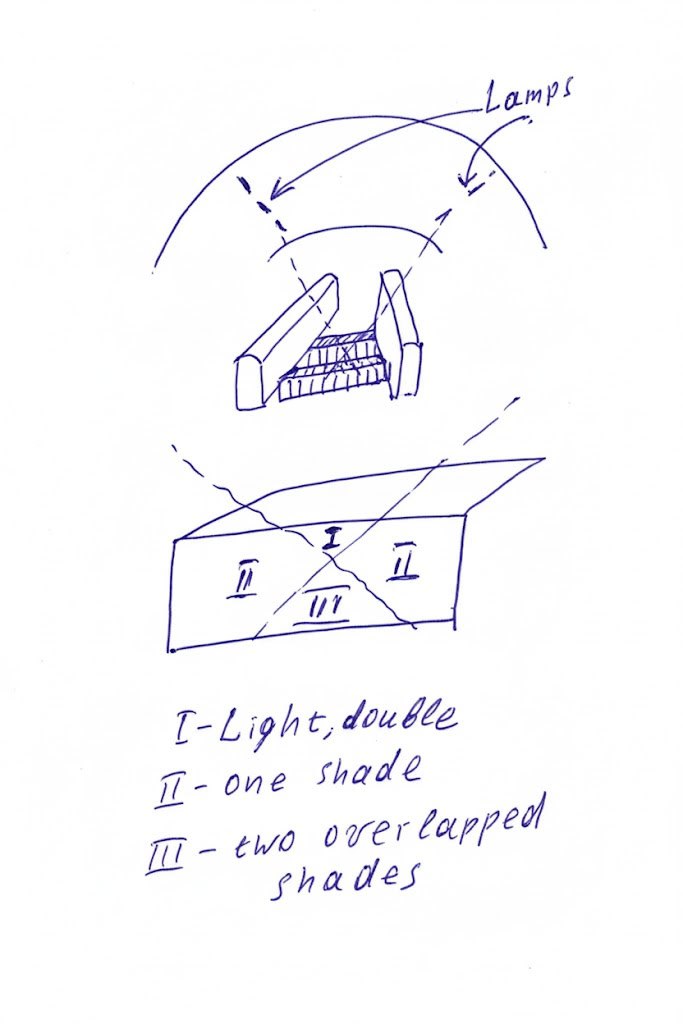 Lamps
I
II
II
III
I-Light, double
II - one shade
III - two overlapped
shades